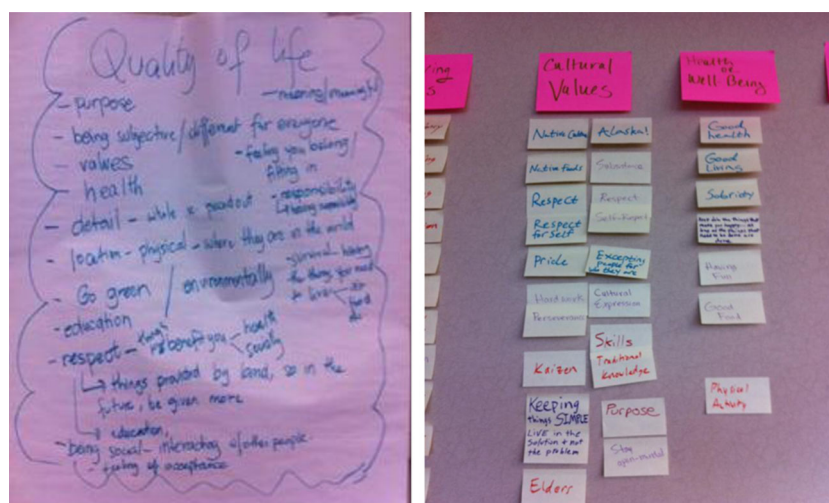 Quality of life
- purpose
- meaning/meaningful
- being subjective/different for everyone
- values
- feeling you belong/
fitting in
- health
- responsibility
- detail - while
- location - physical - where they are in the world
- Go green / environmentally
- survival - having
the things you need
to live
food
- education
- respect -
benefit you
health
socially
things provided by land, so in the
future, be given more
education,
- being social - interacting w/other people
- feeling of acceptance
Cultural
Values
Native foods
Respect
Respect
for self
Pride
Hard work
Perseverance
Kaizen
Keeping
things SIMPLE
LIVE in the
Solution + not
the problem
Elders
Alaska!
Subsistence
Respect
Self-Respect
Excepting
people for
who they are
Cultural
Expression
Skills
Traditional
Knowledge
Purpose
Stay
open-minded
Health
or
Well-Being
Good
health
Good
Living
Sobriety
Having
Fun
Good
Food
Physical
Activity